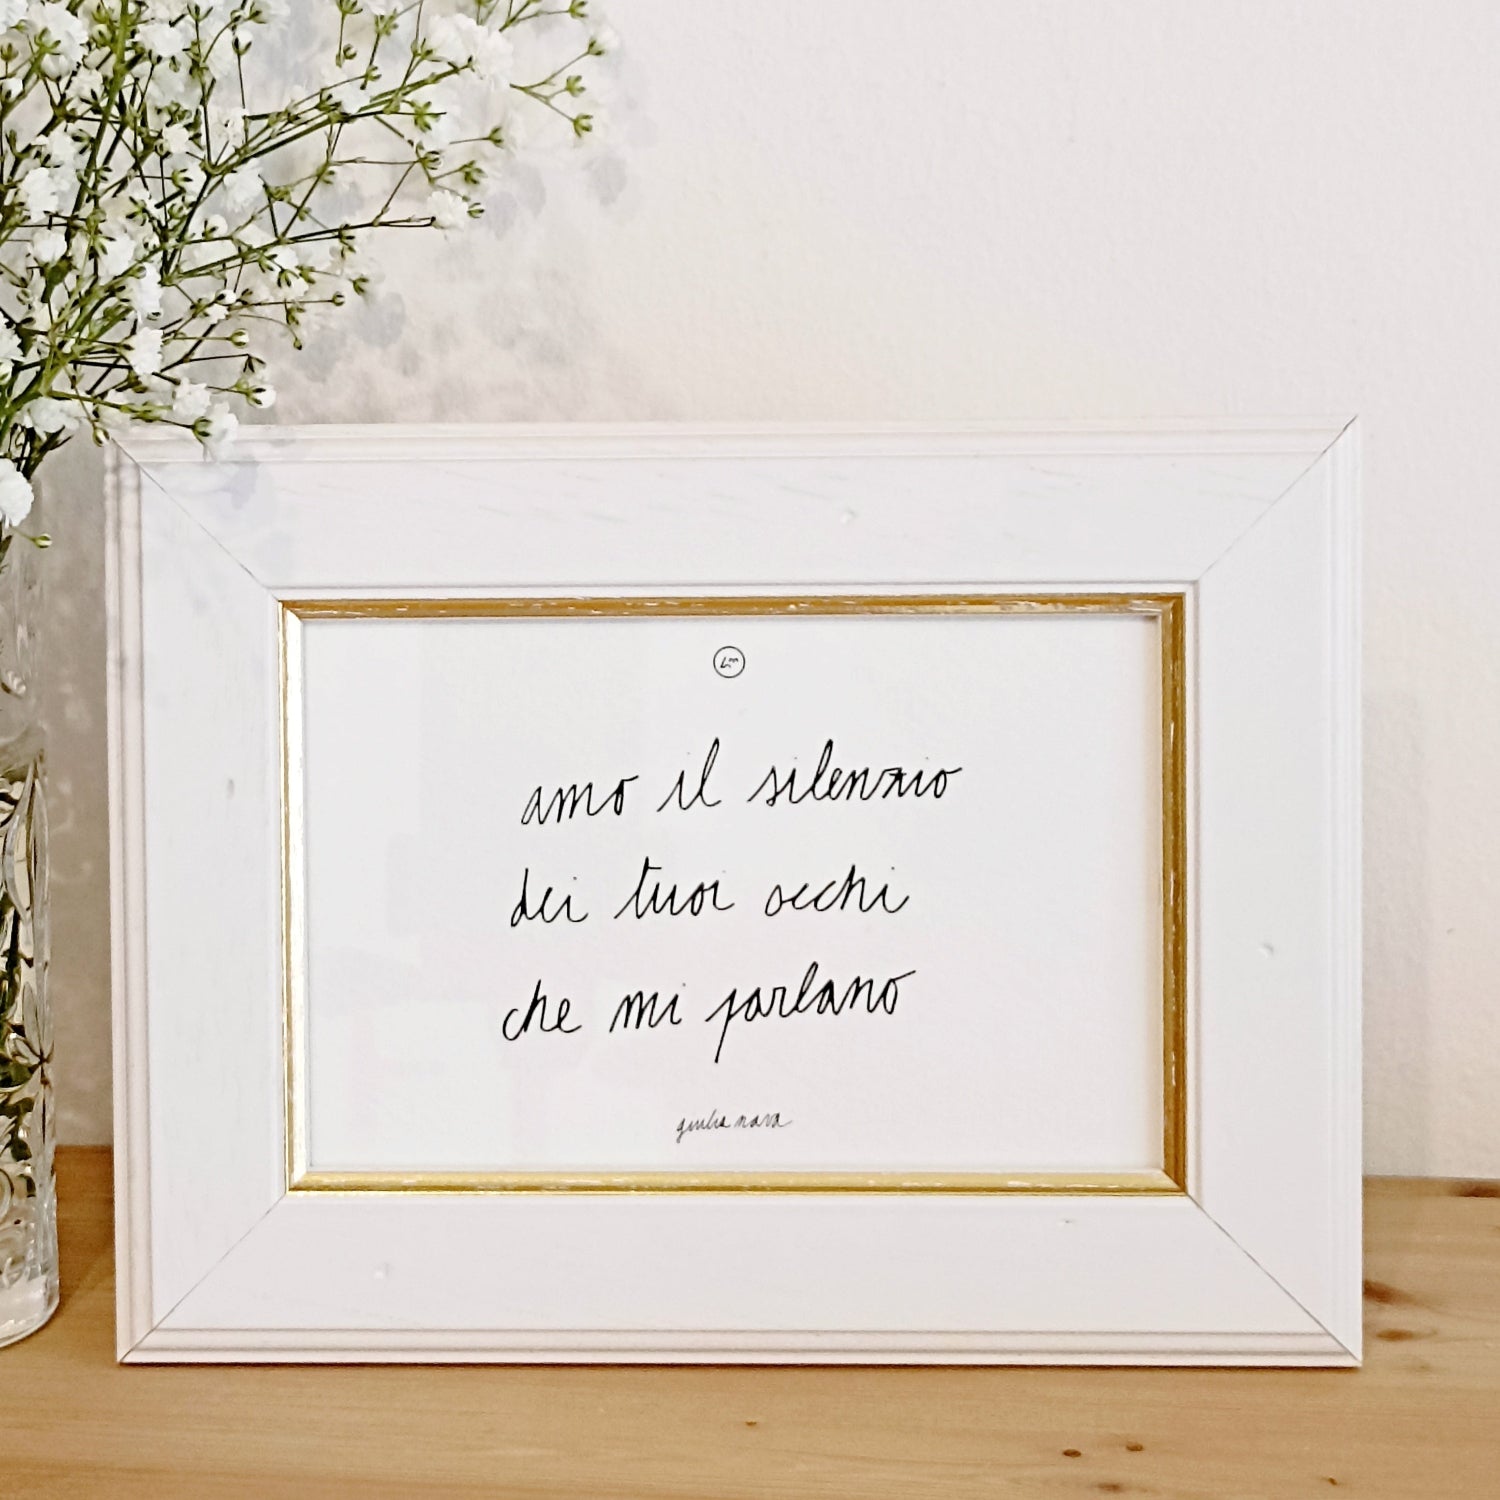 amo il silenzio
dei tuoi occhi
che mi parlano
giulia nava